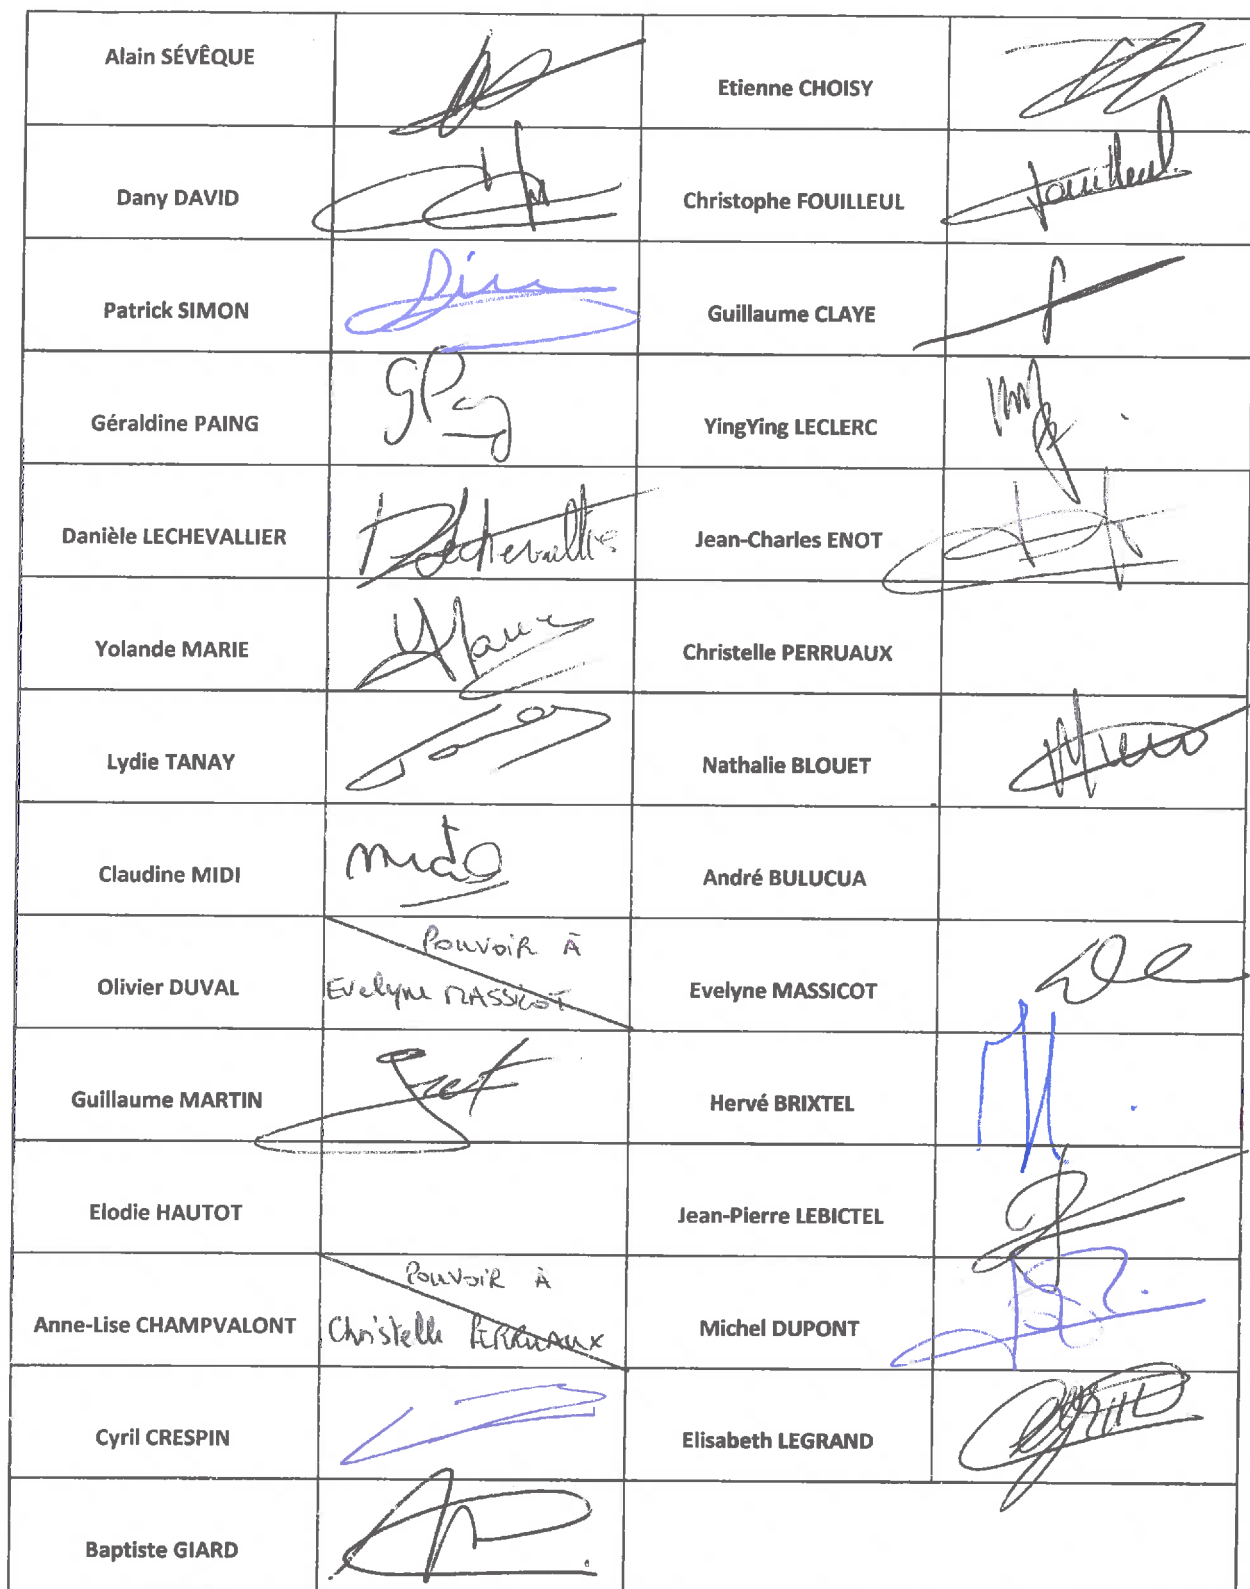 Alain SÉVÊQUE
Etienne CHOISY
Dany DAVID
Christophe FOUILLEUL
Patrick SIMON
Guillaume CLAYE
Géraldine PAING
YingYing LECLERC
Danièle LECHEVALLIER
Jean-Charles ENOT
Yolande MARIE
Christelle PERRUAUX
Lydie TANAY
Nathalie BLOUET
Claudine MIDI
André BULUCUA
Olivier DUVAL
Pouvoir À
Evelyne MASSICOT
Evelyne MASSICOT
Guillaume MARTIN
Hervé BRIXTEL
Elodie HAUTOT
Jean-Pierre LEBICTEL
Anne-Lise CHAMPVALONT
Pouvoir À
Christelle PERRUAUX
Michel DUPONT
Cyril CRESPIN
Elisabeth LEGRAND
Baptiste GIARD